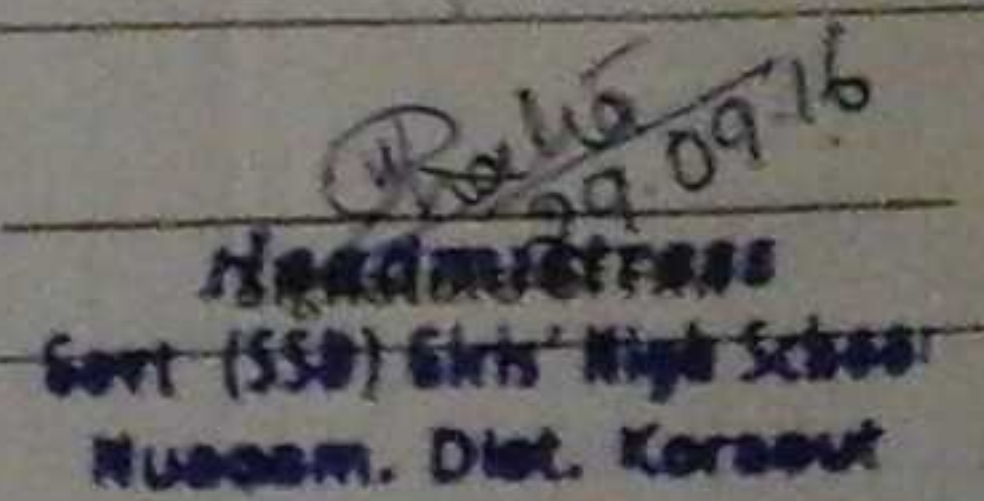 29.09.16
Headmistress
Govt (SSD) Girls' High School
Dist. Koraput